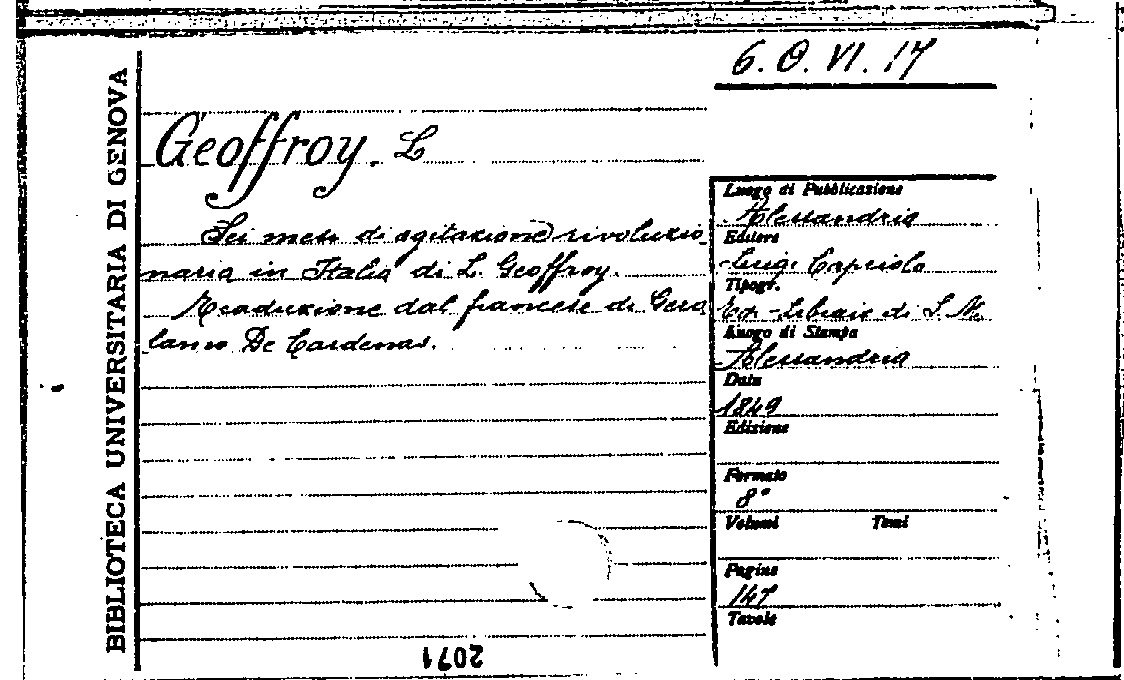 6. O. VI. 17
BIBLIOTECA UNIVERSITARIA DI GENOVA
Geoffroy. L
Sei mesi di agitazione rivoluzio
naria in Italia di L. Geoffroy.
Traduzione dal francese di Gero
lamo De Cardenas.
Luogo di Pubblicazione
Alessandria
Editore
Luigi Capriolo
Tipogr.
Libraio di
Luogo di Stampa
Alessandria
Data
1849
Edizione
Formato
8°
Volumi Tomi
Pagine
147
Tavole
2071